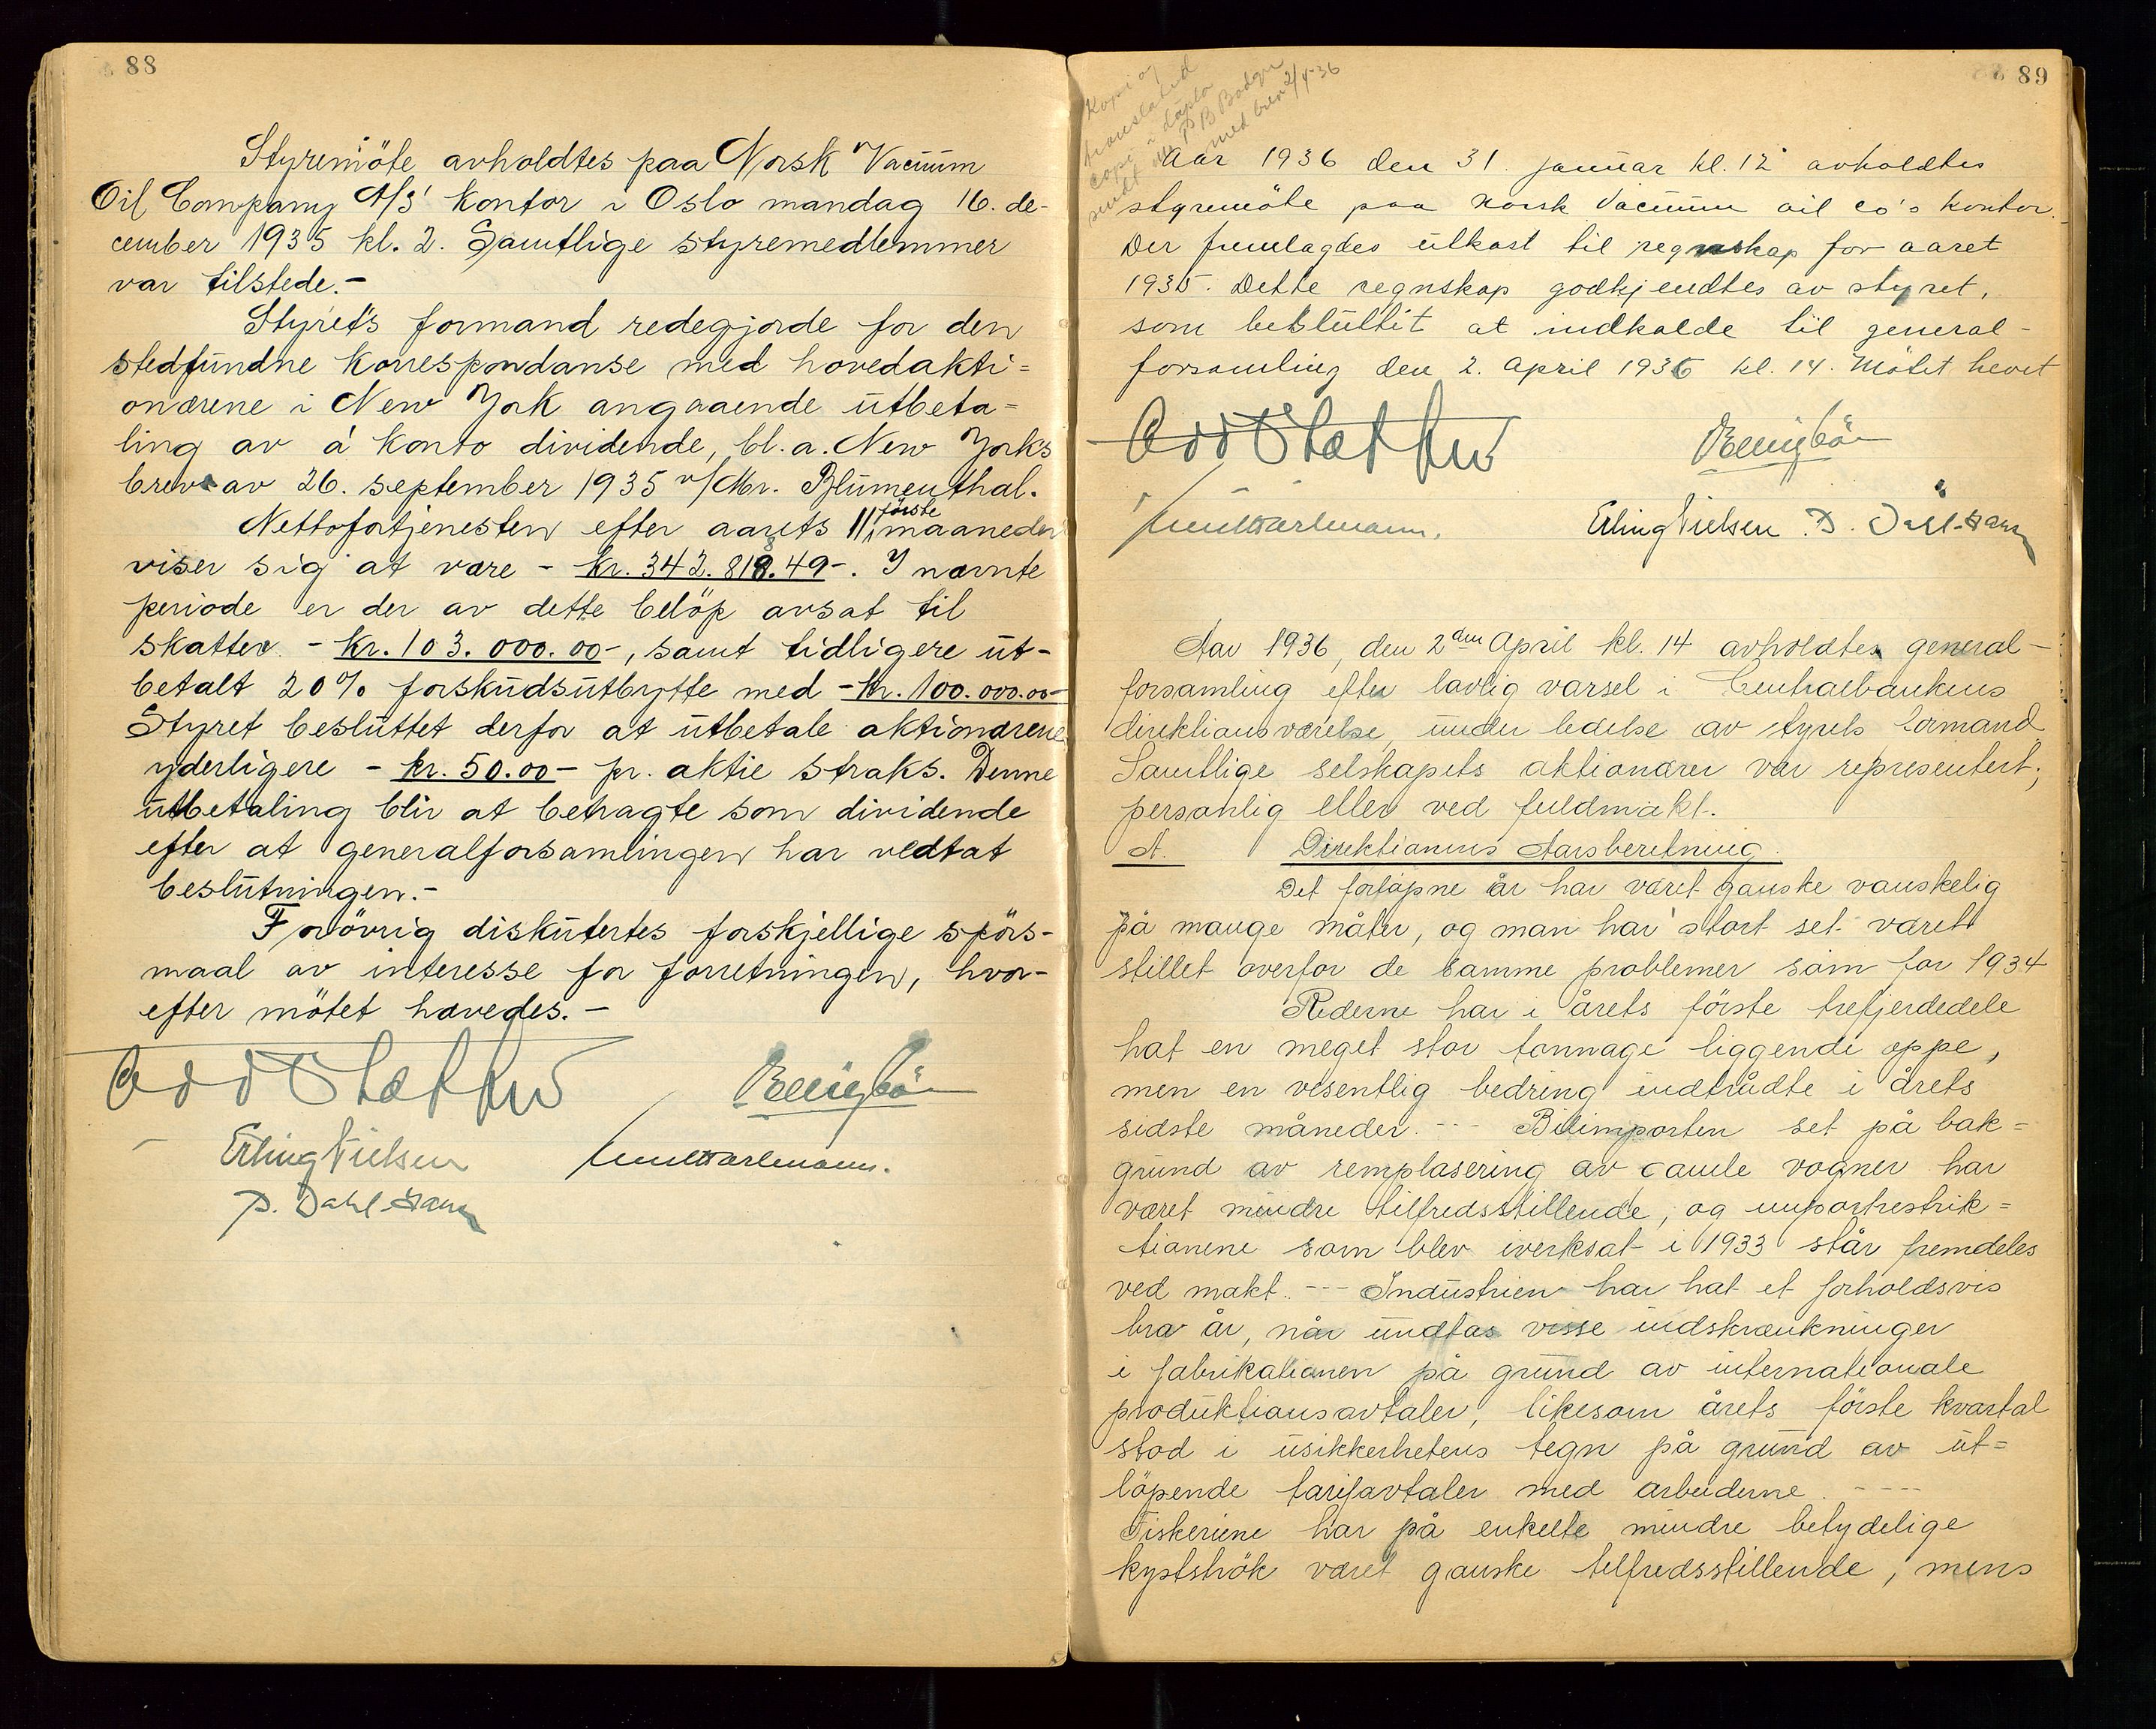 88
Styremöte avholdtes paa Norsk Vacuum
Oil Company A/S' kontor i Oslo mandag 16. de-
cember 1935 kl. 2. Samtlige styremedlemmer
var tilstede.-
Styrets formand redegjorde for den
stedfundne korrespondanse med hovedakti=
onærene i New York angaaende utbeta=
ling av á konto dividende, bl.a. New Yorks
brev av 26. september 1935 v/Mr. Blumenthal.
Nettofortjenesten efter aarets 11 første maaneder
viser sig at være - kr. 342.818.49-. I nævnte
periode er der av dette belöp avsat til
skatter - kr. 103.000.00-, samt tidligere ut-
betalt 20% forskudsutbytte med - kr. 100.000.00-
Styret besluttet derfor at utbetale aktionærene
yderligere - kr. 50.00- pr. aktie straks. Denne
utbetaling blir at betragte som dividende
efter at generalforsamlingen har vedtat
beslutningen.-
Forövrig diskutertes forskjellige spörs-
maal av interesse for forretningen, hvor-
efter mötet hævedes.-
Erling Nielsen
P. Dahl-Hansen
89
Kopi og
translated
copi i
sendt
med brev 2/4-36
Aar 1936 den 31. januar kl. 12 avholdtes
styremöte paa Norsk Vacuum oil co's kontor.
Der fremlagdes utkast til regnskap for aaret
1935. Dette regnskap godkjendtes av styret,
som besluttit at indkalde til general-
forsamling den 2. april 1936 kl. 14. Mötet hevet
Erling Nielsen P. Dahl-Hansen
Aar 1936, den 2den April kl. 14 avholdtes general-
forsamling efter lovlig varsel i Centralbankens
direktionsværelse, under ledelse av styrets formand.
Samtlige selskapets aktionærer var representert,
personlig eller ved fuldmakt.
A. Direktionens Aarsberetning.
Det forløpne år har været ganske vanskelig
på mange måter, og man har stort set været
stillet overfor de samme problemer som for 1934
Rederne har i årets förste trefjerdedele
hat en meget stor tonnage liggende oppe,
men en vesentlig bedring indtrådte i årets
sidste måneder. --- Bilimporten set på bak=
grund av remplasering av gamle vogner har
været mindre tilfredsstillende, og importrestrik=
tionene som blev iverksat i 1933 står fremdeles
ved makt. --- Industrien har hat et forholdsvis
bra år, når undtas visse indskrænkninger
i fabrikationen på grund av internationale
produktionsavtaler, likesom årets förste kvartal
stod i usikkerhetens tegn på grund av ut=
löpende tarifavtaler med arbeiderne. ----
Fiskeriene har på enkelte mindre betydelige
kystströk været ganske tilfredsstillende, mens